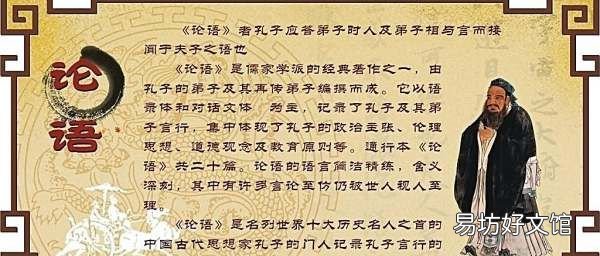 论语
《论语》者孔子应答弟子时人及弟子相与言而接
闻于夫子之语也
《论语》是儒家学派的经典著作之一，由
孔子的弟子及其再传弟子编撰而成。它以语
录体和对话文体 为主，记录了孔子及其弟
子言行，集中体现了孔子的政治主张、伦理
思想、道德观念及教育原则等。通行本《论
语》共二十篇。论语的语言简洁精练，含义
深刻，其中有许多言论至仿仍被世人视人至
理。
《论语》是名列世界十大历史名人之首的
中国古代思想家孔子的门人记录孔子言行的
易坊好文馆